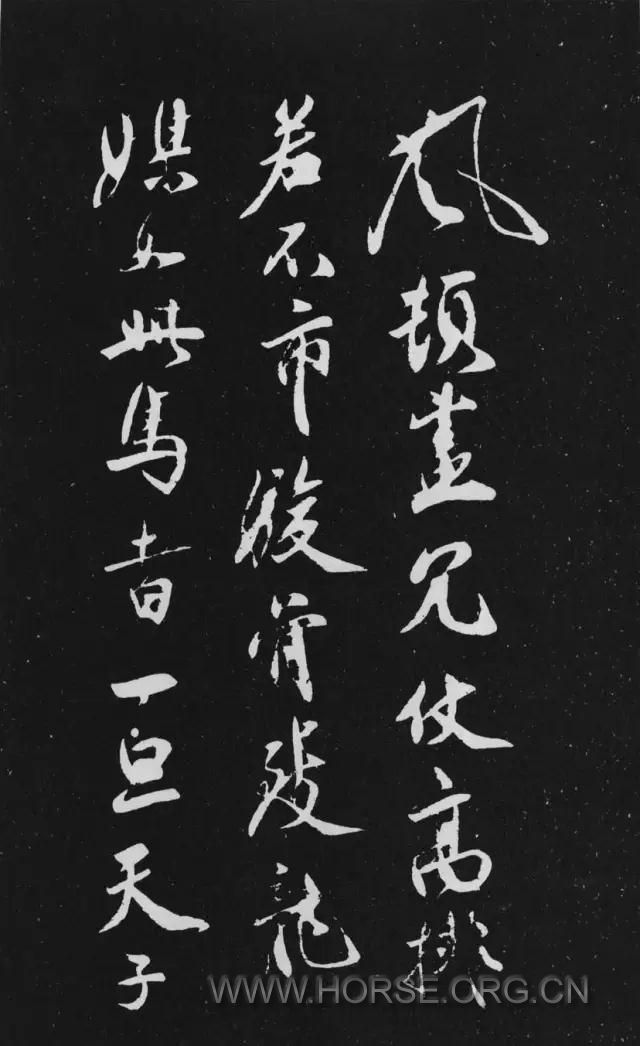 風頓盡冗仗高排
若不市駿骨致龍
媒如此馬者一旦天子
WWW.HORSE.ORG.CN